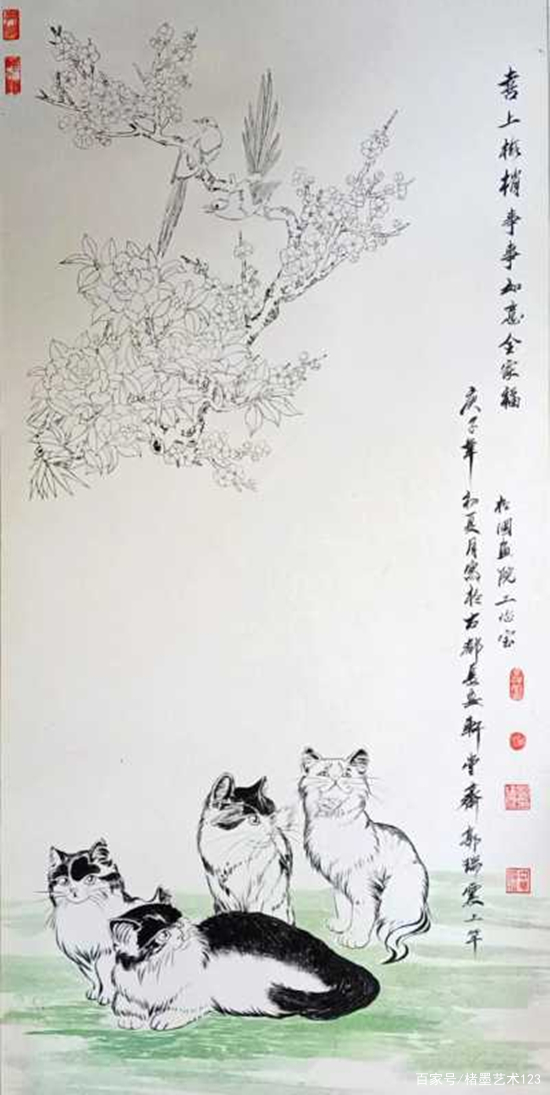 喜上梅梢事事如意全家福
庚子年初夏月写於古都長安軒堂斋郭瑞震上午
於国画院工作室
百家号/楮墨艺术123